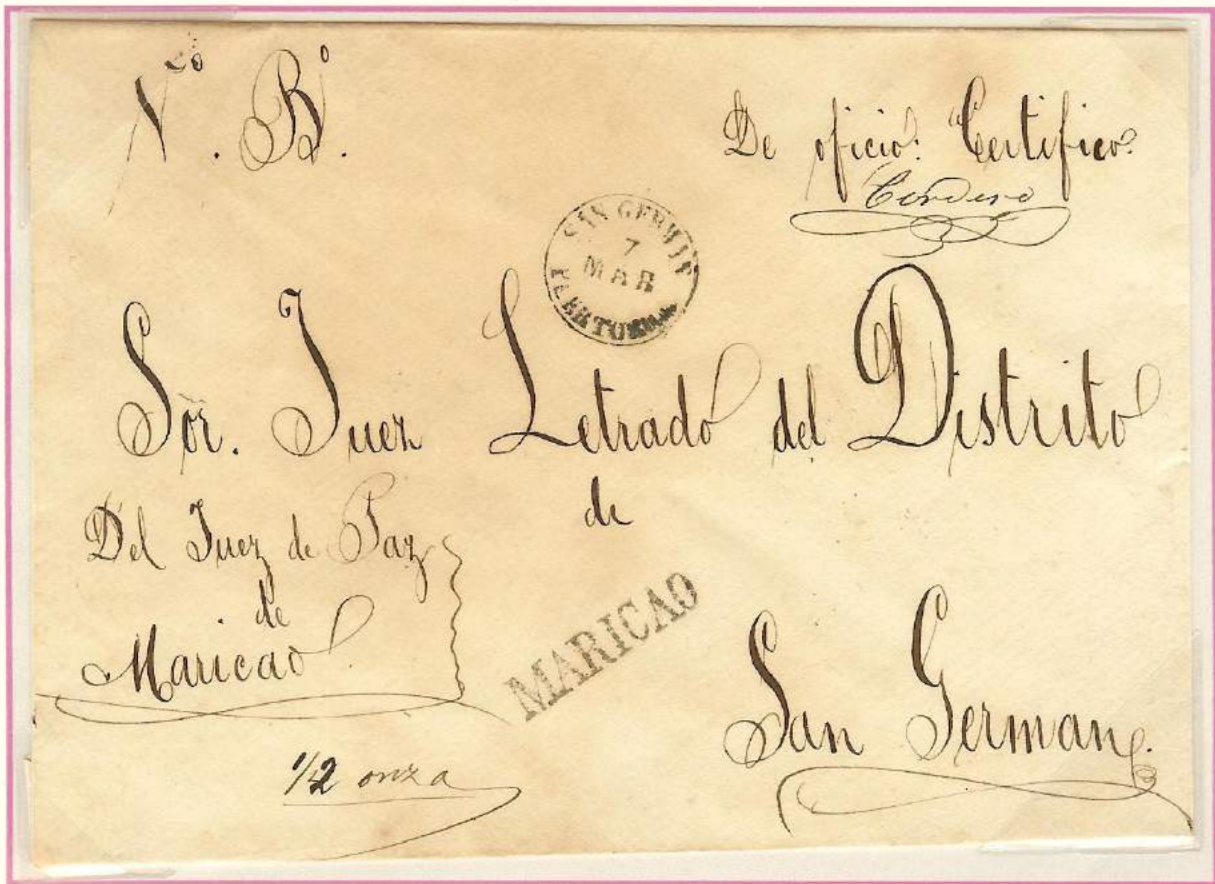 Vto. Bo.
De oficio. Certifico.
Cordero
SAN GERMAN
7
MAR
PUERTO-RICO
Sor. Juez Letrado del Distrito
de
Del Juez de Paz
de
Maricao
MARICAO
San German
1/2 onza